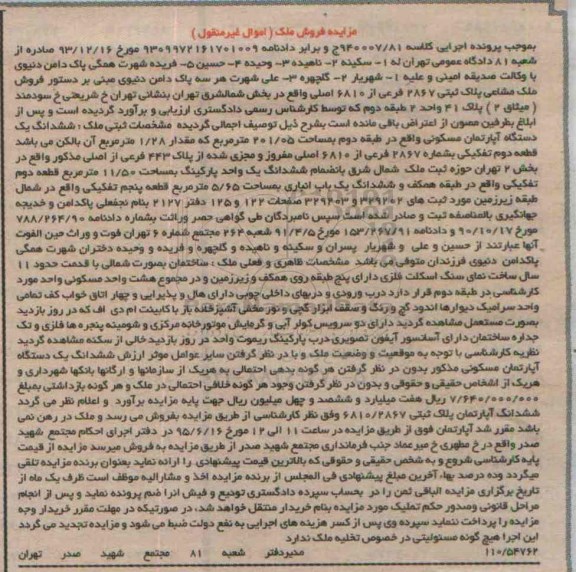 مزایده فروش ملک ( اموال غیرمنقول )
بموجب پرونده اجرایی کلاسه 940007/81ج و برابر دادنامه 9309972161701009 مورخ 93/12/16 صادره از
شعبه 81 دادگاه عمومی تهران له 1- سکینه 2- ناهیده 3- وحیده 4- حسین 5- فریده شهرت همگی پاک دامن دنیوی
با وکالت صدیقه امینی و علیه 1- شهریار 2- گلچهره 3- علی شهرت هر سه پاک دامن دنیوی مبنی بر دستور فروش
ملک مشاعی پلاک ثبتی 2867 فرعی از 6810 اصلی واقع در بخش شمالشرق تهران بنشانی تهران خ شریعتی خ سودمند
( میثاق 2 ) پلاک 41 واحد 2 طبقه دوم که توسط کارشناس رسمی دادگستری ارزیابی و برآورد گردیده است و پس از
ابلاغ بطرفین مصون از اعتراض باقی مانده است بشرح ذیل توصیف اجمالی گردیده مشخصات ثبتی ملک : ششدانگ یک
دستگاه آپارتمان مسکونی واقع در طبقه دوم بمساحت 201/05 مترمربع که مقدار 1/28 مترمربع آن بالکن می باشد
قطعه دوم تفکیکی بشماره 2867 فرعی از 6810 اصلی مفروز و مجزی شده از پلاک 443 فرعی از اصلی مذکور واقع در
بخش 2 تهران حوزه ثبت ملک شمال شرق بانضمام ششدانگ یک واحد پارکینگ بمساحت 11/50 مترمربع قطعه دوم
تفکیکی واقع در طبقه همکف و ششدانگ یک باب انباری بمساحت 5/65 مترمربع قطعه پنجم تفکیکی واقع در شمال
طبقه زیرزمین مورد ثبت های 329202 و 329203 صفحات 122 و 125 دفتر 2127 بنام نجفعلی پاکدامن و خدیجه
جهانگیری بالمناصفه ثبت و صادر شده است سپس نامبردگان طی گواهی حصر وراثت بشماره دادنامه 788/264/90
مورخ 90/10/17 و دادنامه 153/267/91 مورخ 91/4/5 شعبه 264 مجتمع شماره 6 تهران فوت و وراث حین الفوت
آنها عبارتند از حسین و علی و شهریار پسران و سکینه و ناهیده و گلچهره و فریده و وحیده دختران شهرت همگی
پاکدامن دنیوی فرزندان متوفی می باشد مشخصات ظاهری و فعلی ملک : ساختمان بصورت شمالی با قدمت حدود 11
سال ساخت نمای سنگ اسکلت فلزی دارای پنج طبقه روی همکف و زیرزمین و در مجموع هشت واحد مسکونی واحد مورد
کارشناسی در طبقه دوم قرار دارد درب ورودی و دربهای داخلی چوبی دارای هال و پذیرایی و چهار اتاق خواب کف تمامی
واحد سرامیک دیوارها اندود گچ و رنگ و سقف ابزار گچی و نور مخفی آشپزخانه باز با کابینت ام دی اف که در روز بازدید
بصورت مستعمل مشاهده گردید دارای دو سرویس کولر آبی و گرمایش موتورخانه مرکزی و شومینه پنجره ها فلزی و تک
جداره ساختمان دارای آسانسور آیفون تصویری درب پارکینگ ریموت واحد در روز بازدید خالی از سکنه مشاهده گردید
نظریه کارشناسی با توجه به موقعیت و وضعیت ملک و با در نظر گرفتن سایر عوامل موثر ارزش ششدانگ یک دستگاه
آپارتمان مسکونی مذکور بدون در نظر گرفتن هر گونه بدهی احتمالی به هریک از سازمانها و ارگانها بانکها شهرداری و
هریک از اشخاص حقیقی و حقوقی و بدون در نظر گرفتن وجود هر گونه خلافی احتمالی در ملک و هر گونه بازداشتی بمبلغ
7/640/000/000 ریال هفت میلیارد و ششصد و چهل میلیون ریال جهت پایه مزایده برآورد و اعلام نظر می گردد
ششدانگ آپارتمان پلاک ثبتی 6810/2867 وفق نظر کارشناسی از طریق مزایده بفروش می رسد و ملک در رهن نمی
باشد مقرر شد آپارتمان فوق از طریق مزایده در ساعت 11 الی 12 مورخ 95/6/16 در دفتر اجرای احکام مجتمع شهید
صدر واقع در خ مطهری خ میرعماد جنب فرمانداری مجتمع شهید صدر از طریق مزایده به فروش میرسد مزایده از قیمت
پایه کارشناسی شروع و به شخص حقیقی و حقوقی که بالاترین قیمت پیشنهادی را ارائه نماید بعنوان برنده مزایده تلقی
میگردد وده درصد بهاء آخرین مبلغ پیشنهادی فی المجلس از برنده مزایده اخذ و مشارالیه موظف است ظرف یک ماه از
تاریخ برگزاری مزایده الباقی ثمن را در بحساب سپرده دادگستری تودیع و فیش انرا ضم پرونده نماید و پس از انجام
مراحل قانونی وصدور حکم تملیک مورد مزایده بنام خریدار منتقل خواهد شد، در صورتیکه در مهلت مقرر خریدار وجه
مزایده را پرداخت ننماید سپرده وی پس از کسر هزینه های اجرایی به نفع دولت ضبط می شود و مزایده تجدید می گردد
این اجرا هیچ گونه مسئولیتی در خصوص تخلیه ملک ندارد
110/54762 مدیردفتر شعبه 81 مجتمع شهید صدر تهران